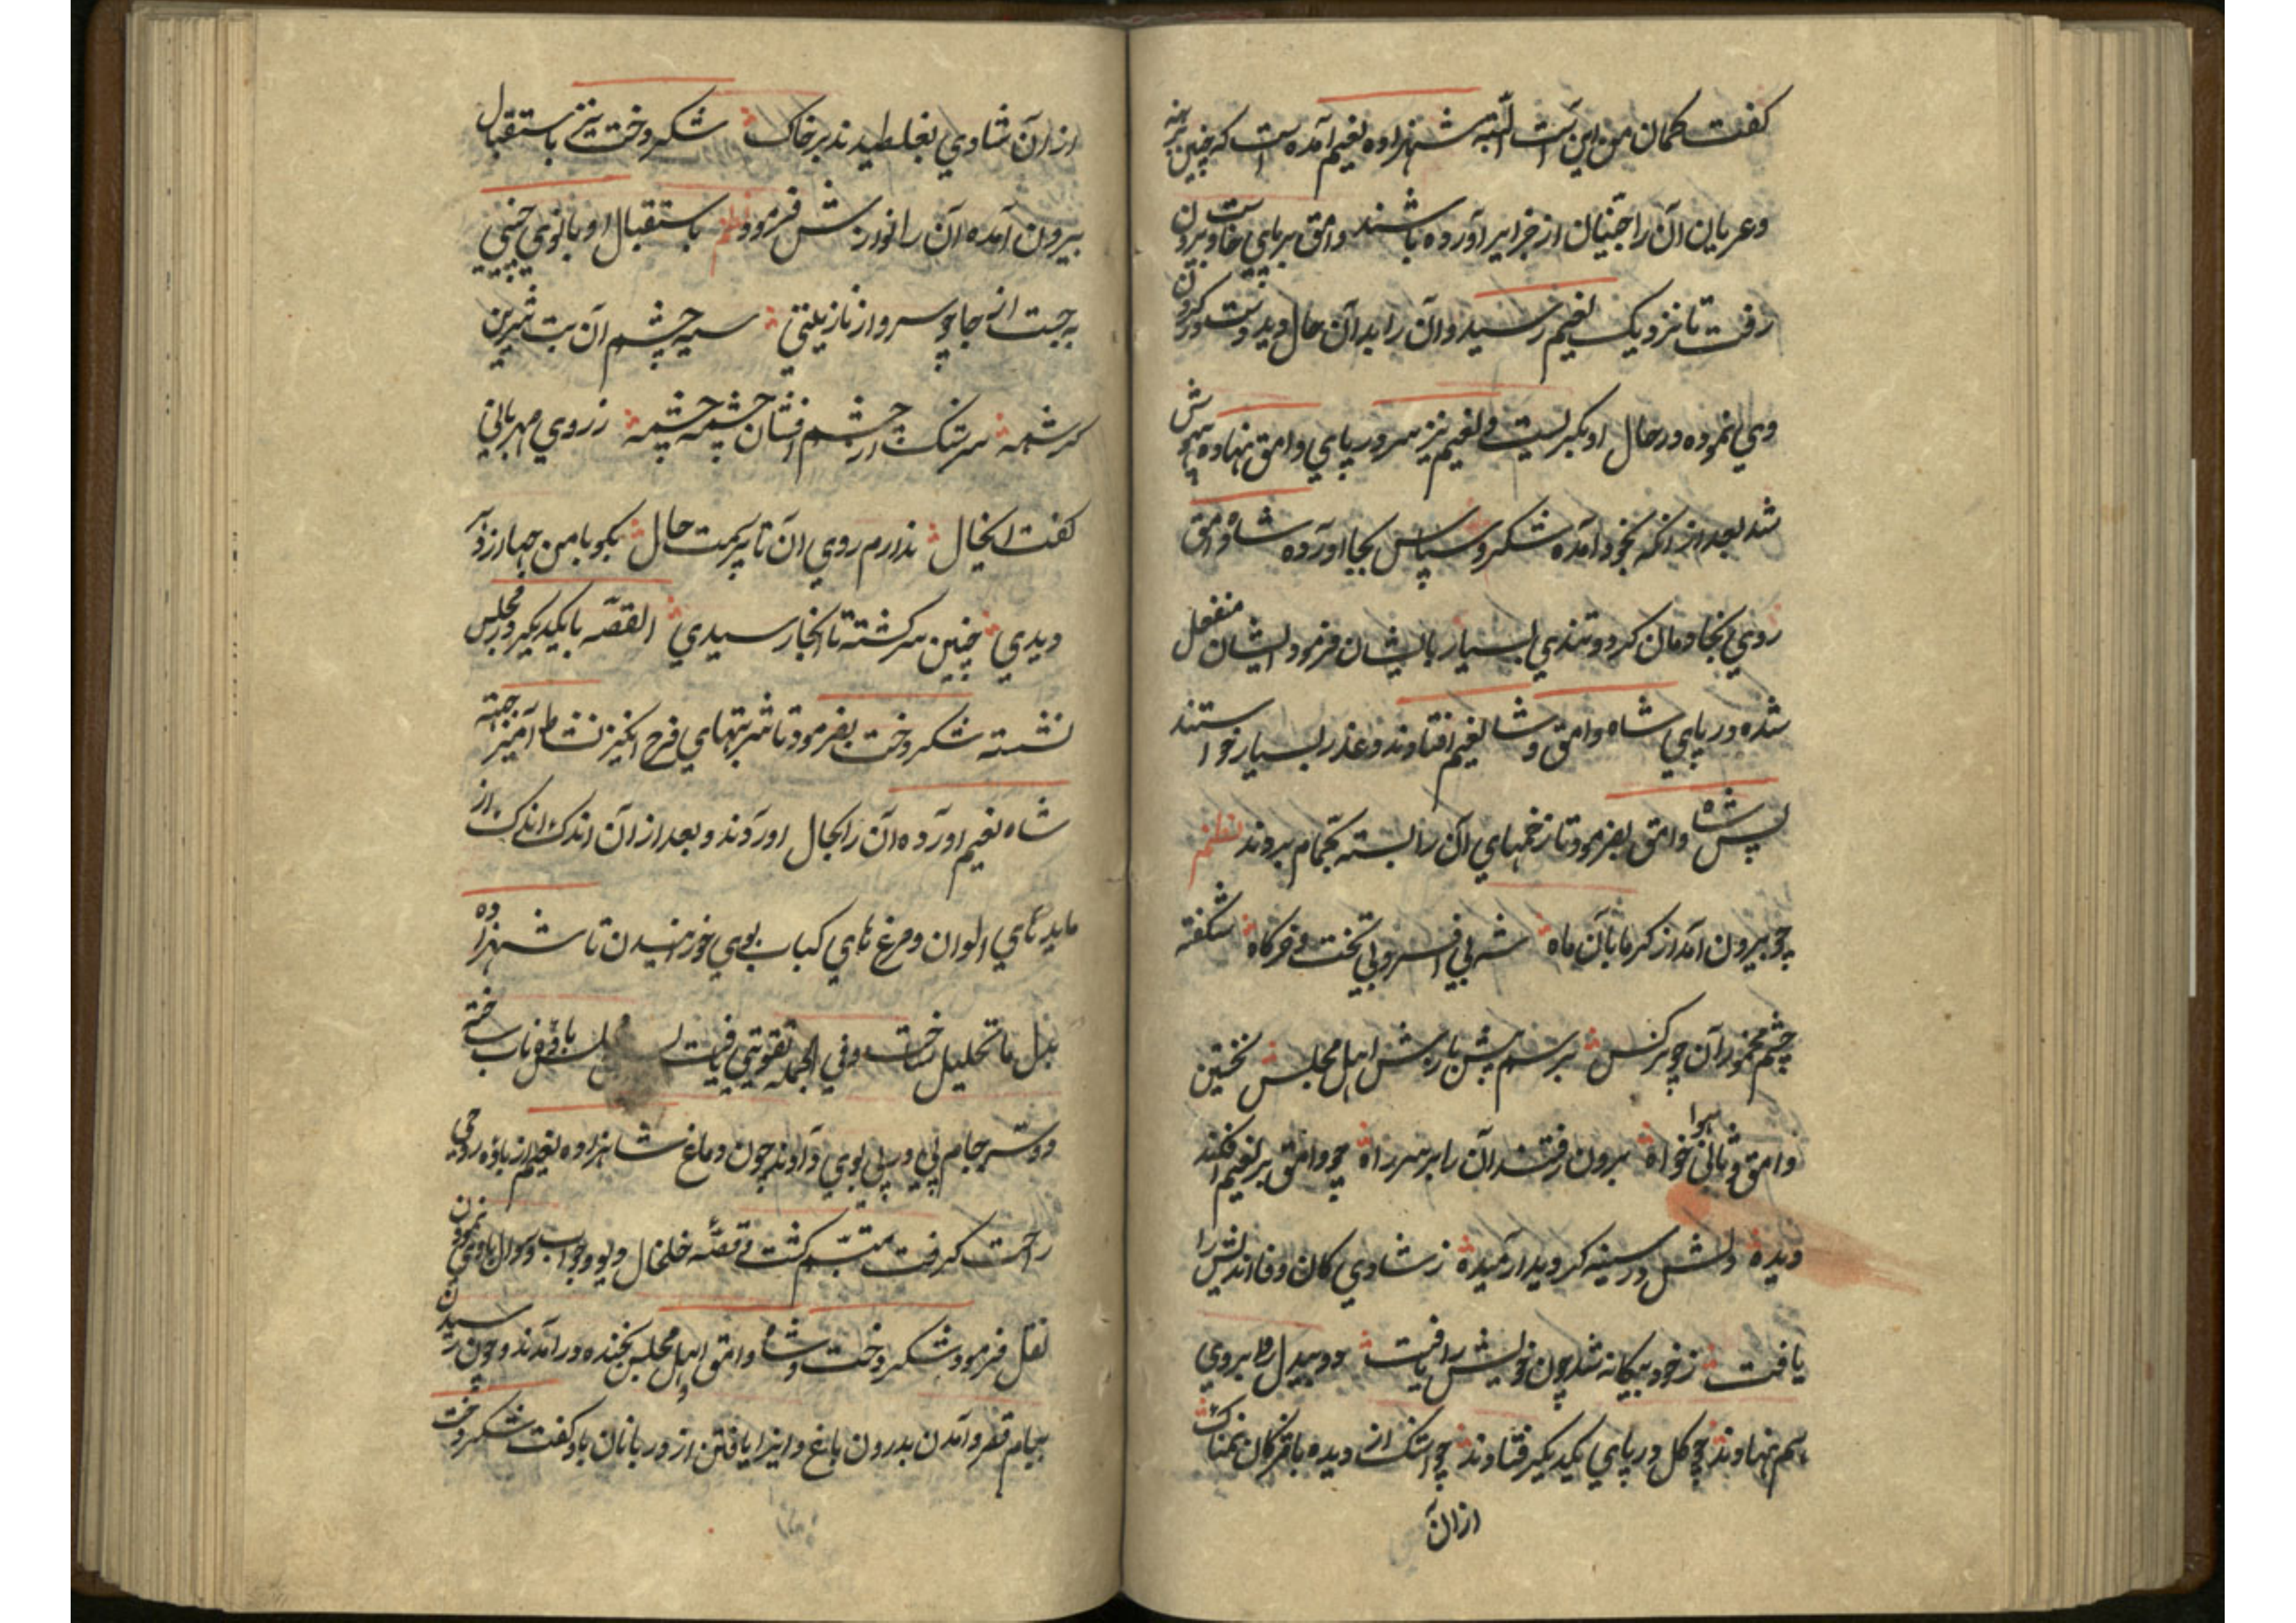 کفت کمان من این است البته شهزاده نعیم آمده است که چنین برهنه
وعریان آن را جنیان از جزایر آورده باشند وامق برپای خاست و بیرون
رفت تا نزدیک نعیم رسید و آن را بدان حال دید دست در کردن
وی نموده در حال او بکریست و نعیم نیز سر در پای وامق نهاده بیهوش
شد بعد از انکه بخود آمده شکر و سپاس بجا اورده شاه وامق
روی بجادمان کرد و تندی بسیار بایشان فرمود ایشان منفعل
شده در پای شاه وامق و شاه نعیم افتادند و عذر بسیار خواستند
پس شاه وامق بفرمود تا زخمهای آن را بسته بحمام بردند نظم
چو بیرون آمد از کرمابه آن ماه شه بی افسر و بی تخت و خرکاه شکفته
چشم مخمور آن چو نرکس برسم پیش بازش اهل مجلس نخستین
وامق و ثانی هوا خواه برون رفتند آن را بر سر راه چو وامق بر نعیم افکند
دیده دلش در سینه کردید ارمیده ز شادی کان وفا اندیش را
یافت ز خود بیکانه شد چون خویش را یافت دو بیدل رو بروی
هم نهادند چو کل در پای یکدیکر فتادند چو اشک از دیده با مژکان نمناک
از ان
از ان شادی بغلطیدند بر خاک شکردخت نیز باستقبال
بیرون آمده آن را نوازش فرمود نظم باستقبال او بانوی چینی
بجست از جا چو سرو از نازنینی سیه چشم آن بت شیرین
کرشمه سرشک از چشم افشان چشمه چشمه ز روی مهربانی
کفت انحال ندارم روی ان تا پرسمت حال بکو با من چها از دهر
دیدی چنین سرکشته تا انجا رسیدی القصه با یکدیکر در مجلس
نشسته شکردخت بفرمود تا شربتهای فرح انکیز نشاط آمیز جهته
شاه نعیم اورده آن را بحال اوردند و بعد از ان اندک اندک از
مایده های الوان و مرغ های کباب بوی خورانیدن تا شهزاده
بدل ما تحلیل ساخت و فی الجمله تقویتی یافت باده ناب ساخته
دو سه جام پی در پی بوی دادند چون دماغ شاهزاده نعیم از باده روحی
راحت کرفت متبسم کشت و قصه خلخال دیو و جواب و سوال با وی نمودن
نقل فرمود شکردخت و شاه وامق و اهل مجلس بخنده در آمدند و چون رسیدن
بپام قصر و آمدن بدرون باغ و ایذا یافتن از دربانان باو کفت شکردخت